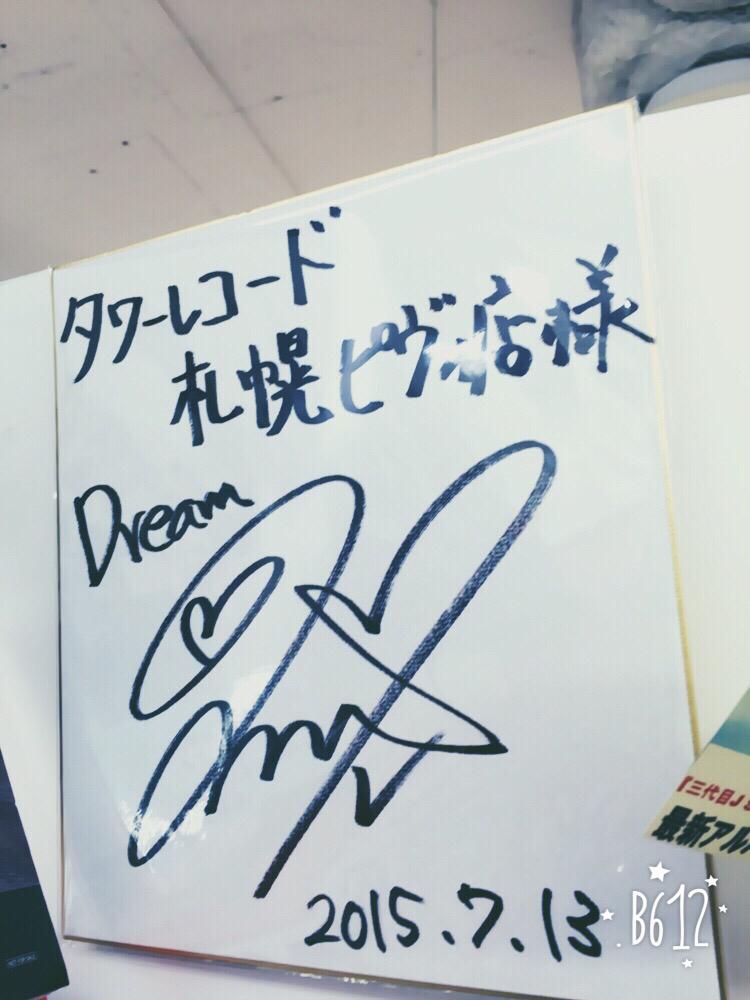 タワーレコード
札幌ピヴォ店様
Dream
2015.7.13
三代目J
最新アル
B612